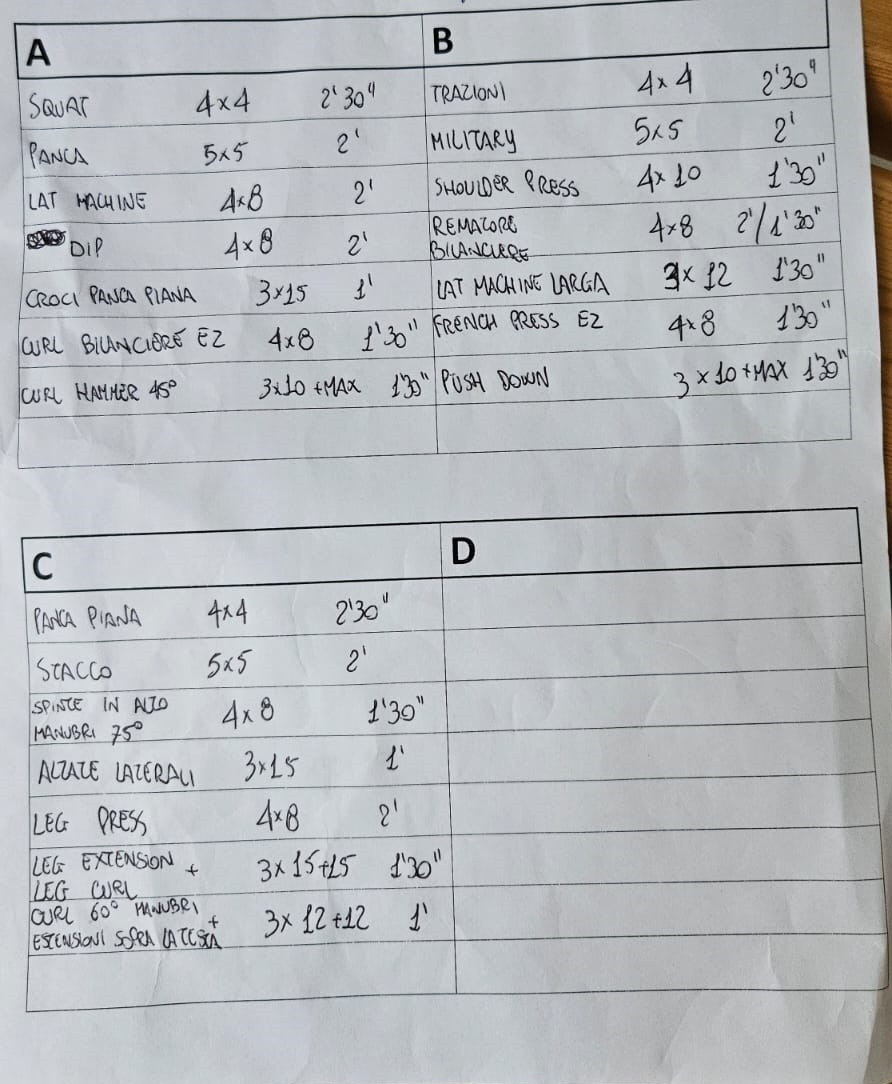 A
SQUAT 4x4 2'30"
PANCA 5x5 2'
LAT MACHINE 4x8 2'
DIP 4x8 2'
CROCI PANCA PIANA 3x15 1'
CURL BILANCIERE EZ 4x8 1'30"
CURL HAMMER 45° 3x10 +MAX 1'30"
B
TRAZIONI 4x4 2'30"
MILITARY 5x5 2'
SHOULDER PRESS 4x10 1'30"
REMATORE
BILANCIERE 4x8 2'/1'30"
LAT MACHINE LARGA 3x12 1'30"
FRENCH PRESS EZ 4x8 1'30"
PUSH DOWN 3x10+MAX 1'30"
C
PANCA PIANA 4x4 2'30"
STACCO 5x5 2'
SPINTE IN ALTO
MANUBRI 75° 4x8 1'30"
ALZATE LATERALI 3x15 1'
LEG PRESS 4x8 2'
LEG EXTENSION +
LEG CURL 3x15+15 1'30"
CURL 60° MANUBRI +
ESTENSIONI SOPRA LA TESTA 3x12+12 1'
D